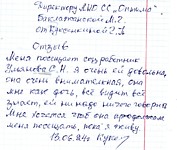 Директору АНО СО "Оптима"
Баклажанской М.Г.
от Букашкиной Г.А
Отзыв
Меня посещает соц.работник
Ушакова С.Н. Я очень ей довольна,
она очень внимательная, она
мне как дочь, всё видит всё
знает, ей ни надо ничего говорить
Мне хочется чтоб она продолжала
меня посещать, пока я живу.
13.06.24г.